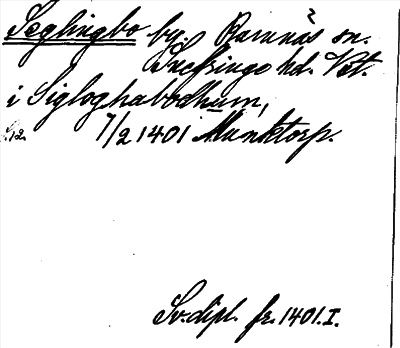 Seglingbo by. Ramnäs sn.
Snefringe hd. Vst.
i Sigloghabodhum,
7/2 1401 Munktorp.
Sv. dipl. fr. 1401. I.